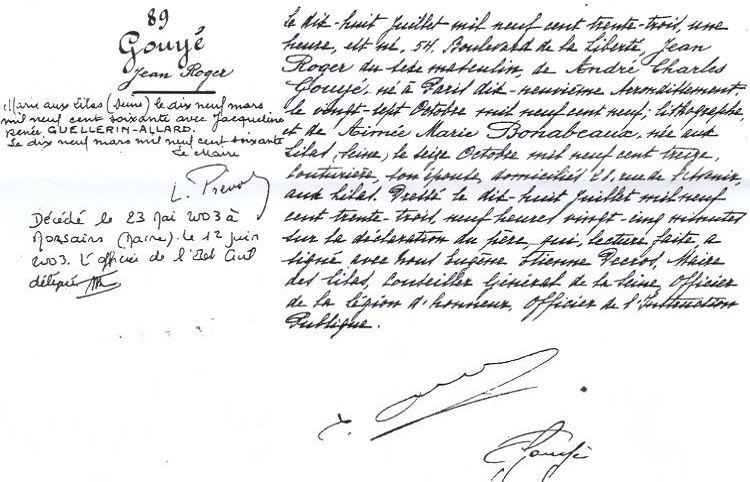 89
Gouyé
Jean Roger
Marié aux Lilas (Seine) le dix neuf mars
mil neuf cent soixante avec Jacqueline
Renée GUELLERIN-ALLARD.
Le dix neuf mars mil neuf cent soixante
Le Maire
L. Prevo
Décédé le 23 Mai 2003 à
Morsains (Marne). Le 12 juin
2003. L'officier de l'Etat Civil
délégué
Le dix-huit Juillet mil neuf cent trente-trois, une
heure, est né, 54, Boulevard de la Liberté, Jean
Roger du sexe masculin, de André Charles
Gouyé, né à Paris dix-neuvième Arrondissement,
le vingt-sept Octobre mil neuf cent neuf, lithographe,
et de Aimée Marie Bonabeaux, née aux
Lilas, Seine, le seize Octobre mil neuf cent treize,
couturière, son épouse, domiciliés 21, rue de
aux Lilas. Dressé le dix-huit Juillet mil neuf
cent trente-trois, neuf heures vingt-cinq minutes
sur la déclaration du père, qui, lecture faite, a
signé avec Nous Eugène Etienne Decros, Maire
des Lilas, Conseiller Général de la Seine, Officier
de la Légion d'honneur, Officier de l'Instruction
Publique.
Gouyé